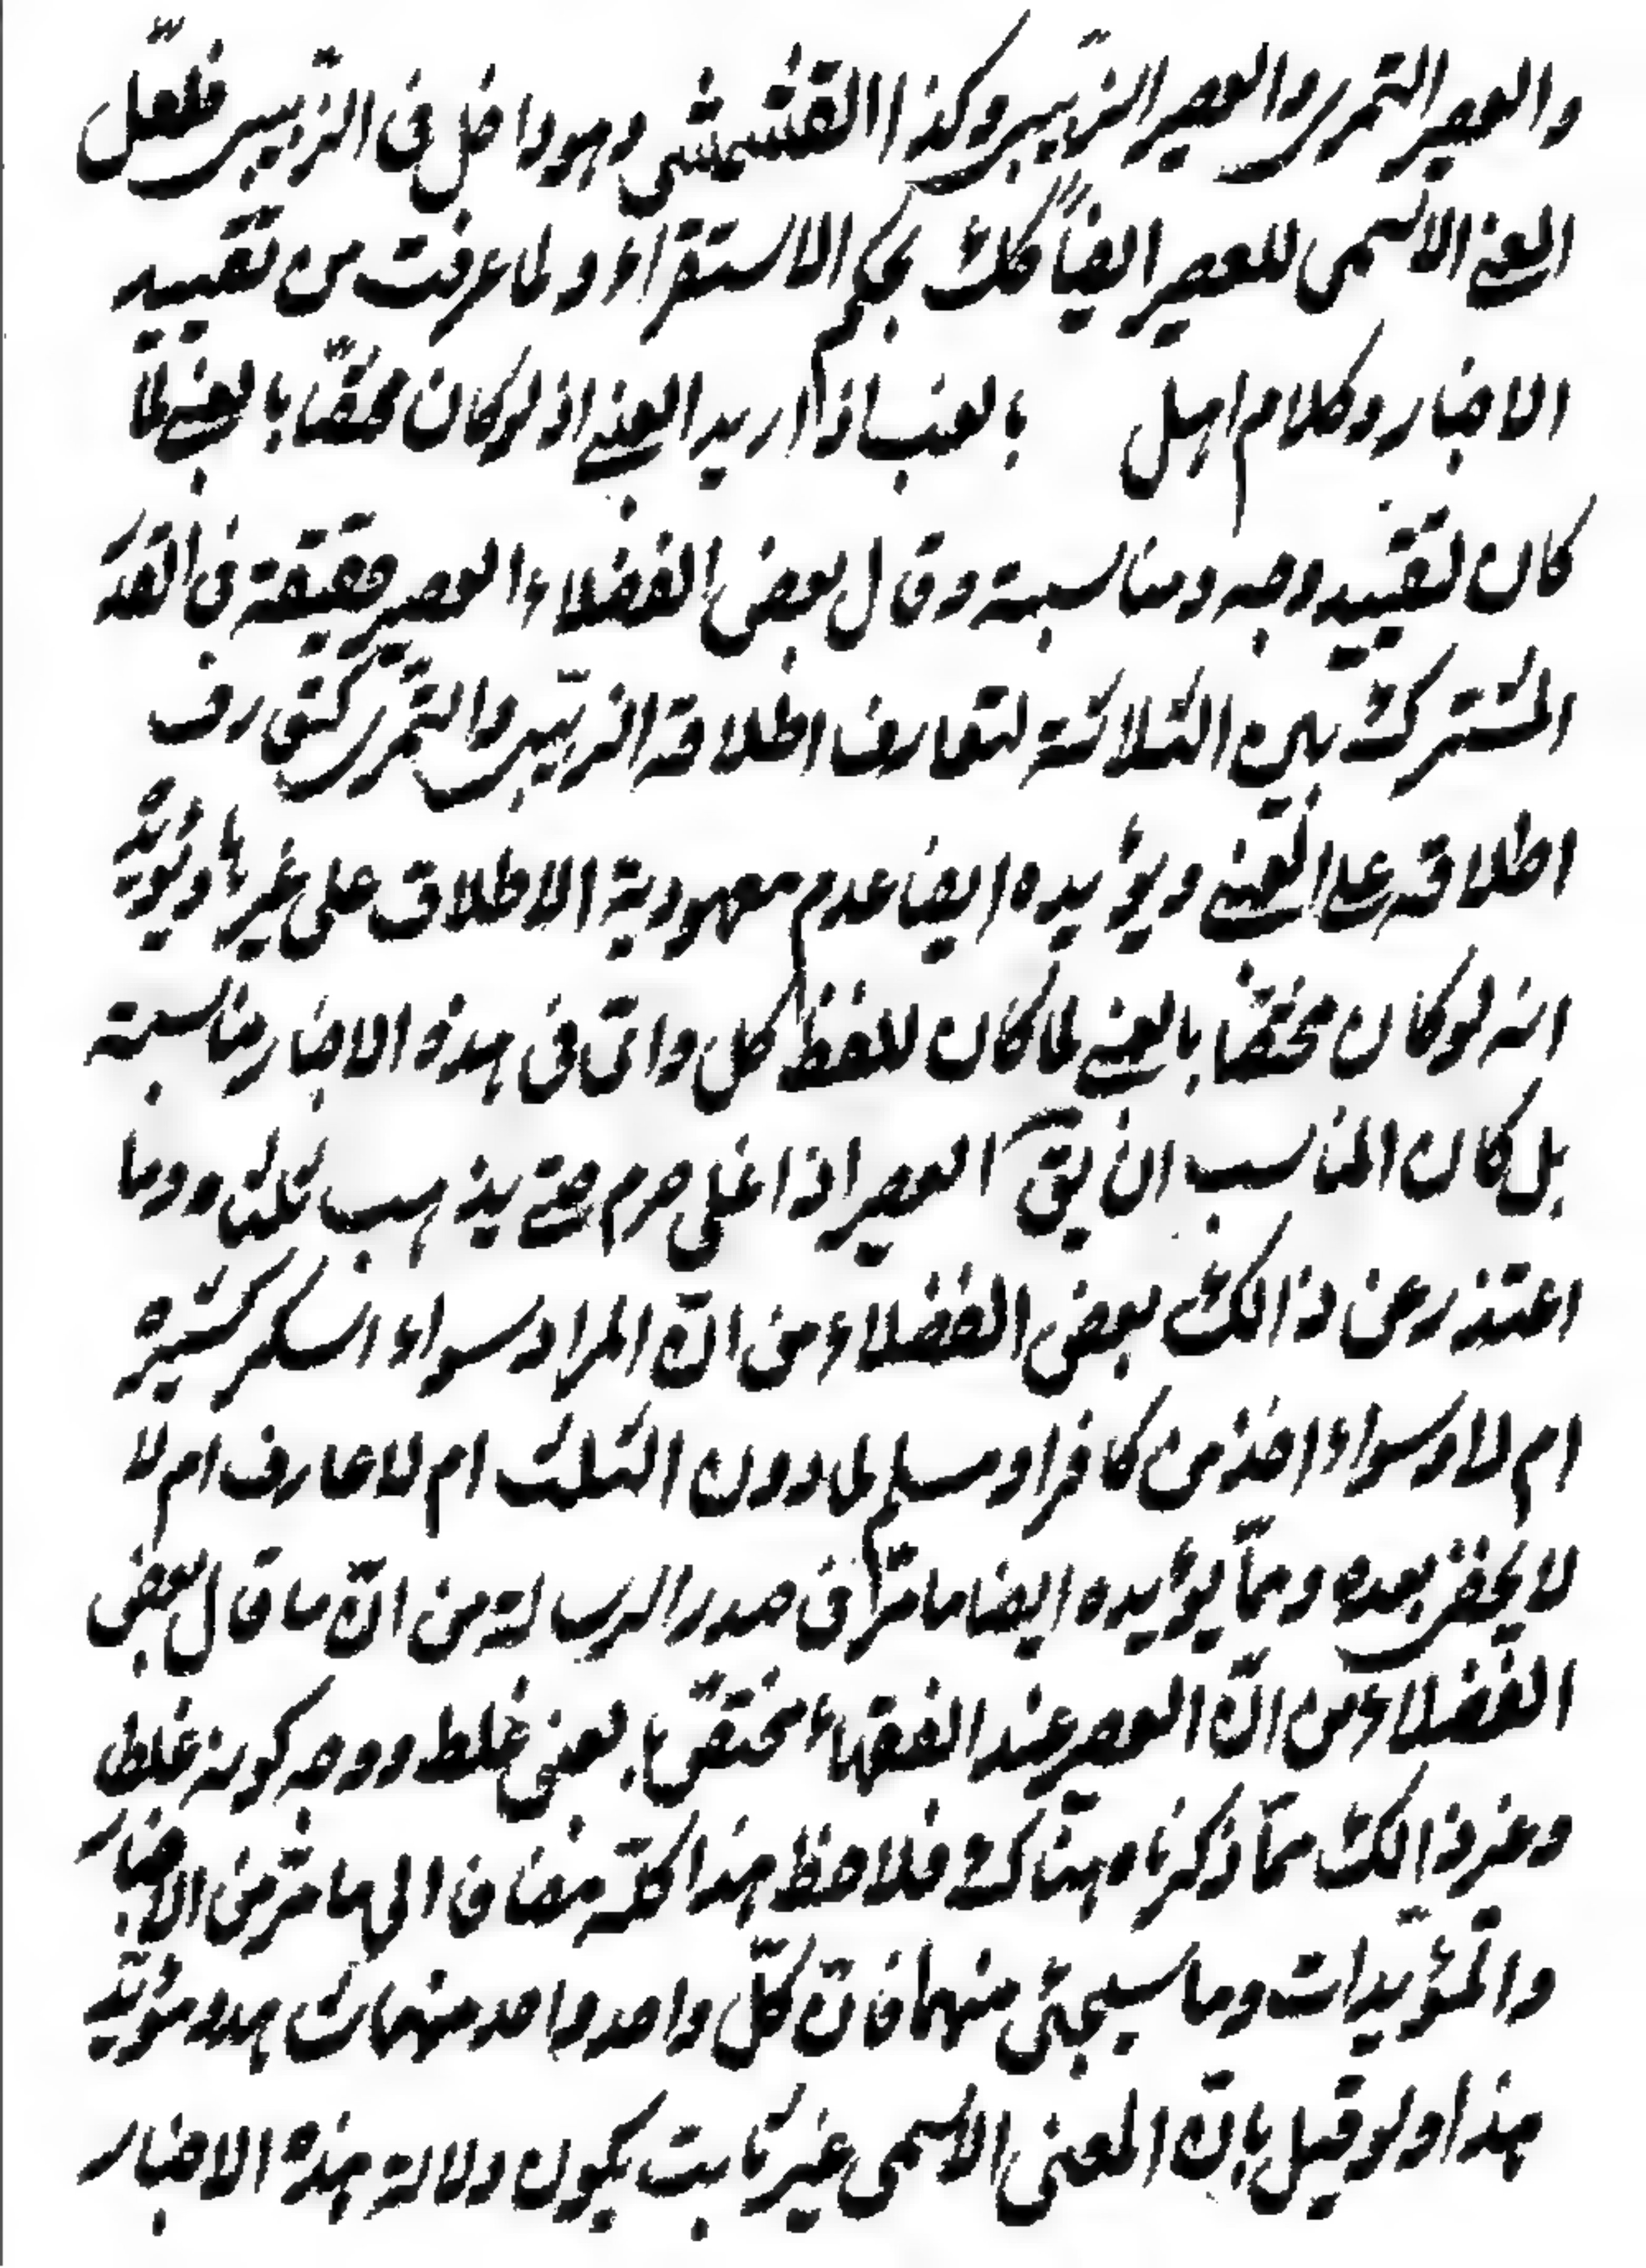 والعصير التمري والعصير الزبيبي وكذا القشمشي وهو داخل في الزبيبي فلعلّ
المعنى الاسمى للعصير ايضاً كك بحكم الاستقراء ولما عرفت من تقييد
الاخبار وكلام اهل بالعنب اذا اريد العنبي اذ لو كان مختصّاً بالعنبي لما
كان لتقييد وجه ومناسبة وقال بعض الفضلاء العصير حقيقة في القدر
المشترك بين الثلاثة لتعارف اطلاقه الزبيبي والتمري كتعارف
اطلاقه على العنبي ويؤيده ايضا عدم معهودية الاطلاق على غيرها ويؤيّد
انه لو كان مختصّاً بالعنبي لما كان للفظ كل واتى في هذه الاخبار مناسبة
بل كان المناسب ان يقآ العصير اذا غلى حرم حتى يذهب ثلثاه وما
اعتذر عن ذالك بعض الفضلاء من انّ المراد سواء اسكر كثيره
ام لا وسواء اخذ من كافر او مسلم لما دون الثلث ام لا عارف ام لا
لا يخفى بعده وممّا يؤيده ايضا ما مرّ في صدر الرسالة من انّ ما قال بعض
الفضلاء من انّ العصير عند الفقهاء مختصّ بالعنبي غلط ووجه كونه غلطا
وغير ذالك ممّا ذكرناه هناك فلاحظ هذا كلّه مضاف الى ما مرّ من الاخبار
والمؤيّدات وما سيجئ منهما فانّ كلّ واحد واحد منهما شاهد ومؤيّد
هذا ولو قيل بانّ المعنى الاسمى غير ثابت يكون دلالة هذه الاخبار